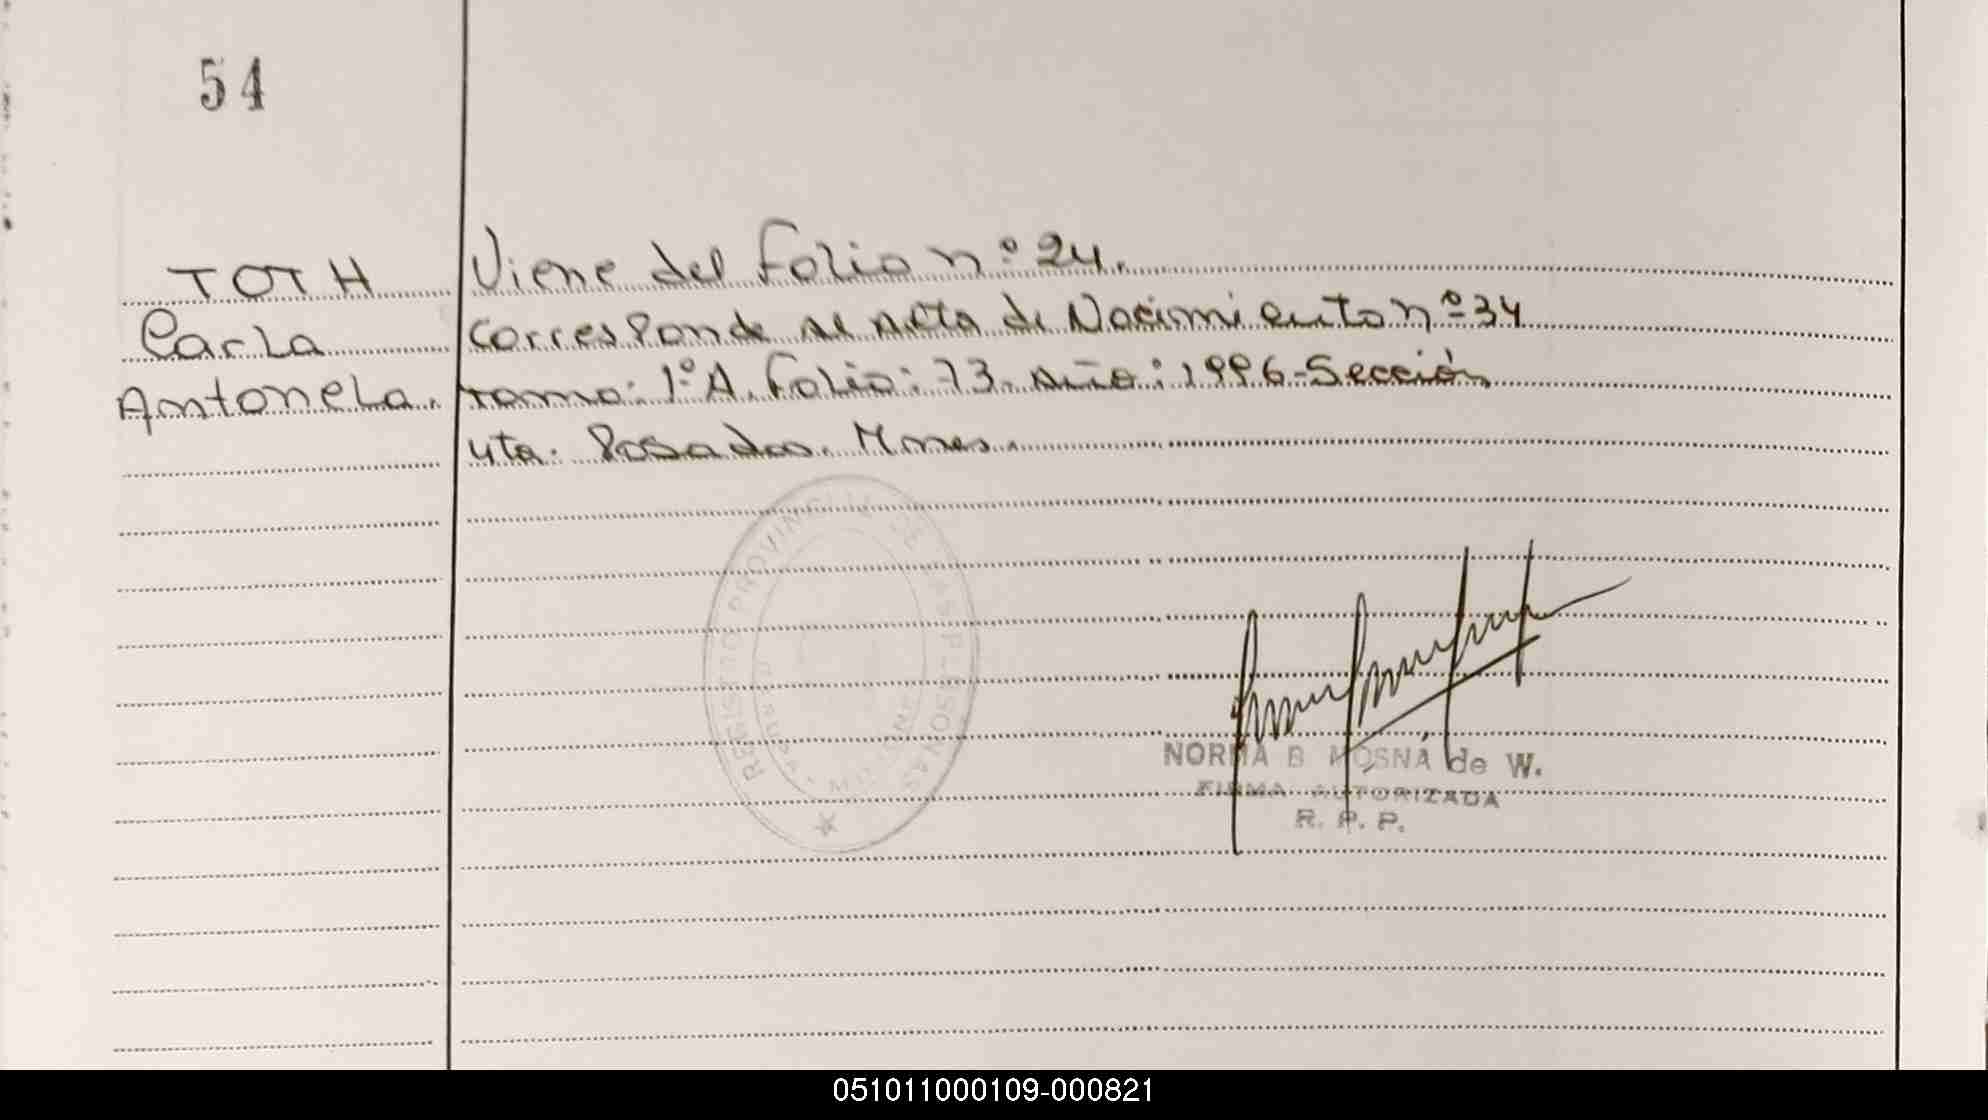 54
TOTH
Carla
Antonela.
Viene del folio nº 24.
Corresponde al Acta de Nacimiento nº 34
tomo: 1º A. Folio: 73. Año: 1996-Sección
4ta. Posadas. Mnes.
REGISTRO PROVINCIAL DE LAS PERSONAS
MISIONES
NORMA B MOSNÁ de W.
FIRMA AUTORIZADA
R. P. P.
051011000109-000821